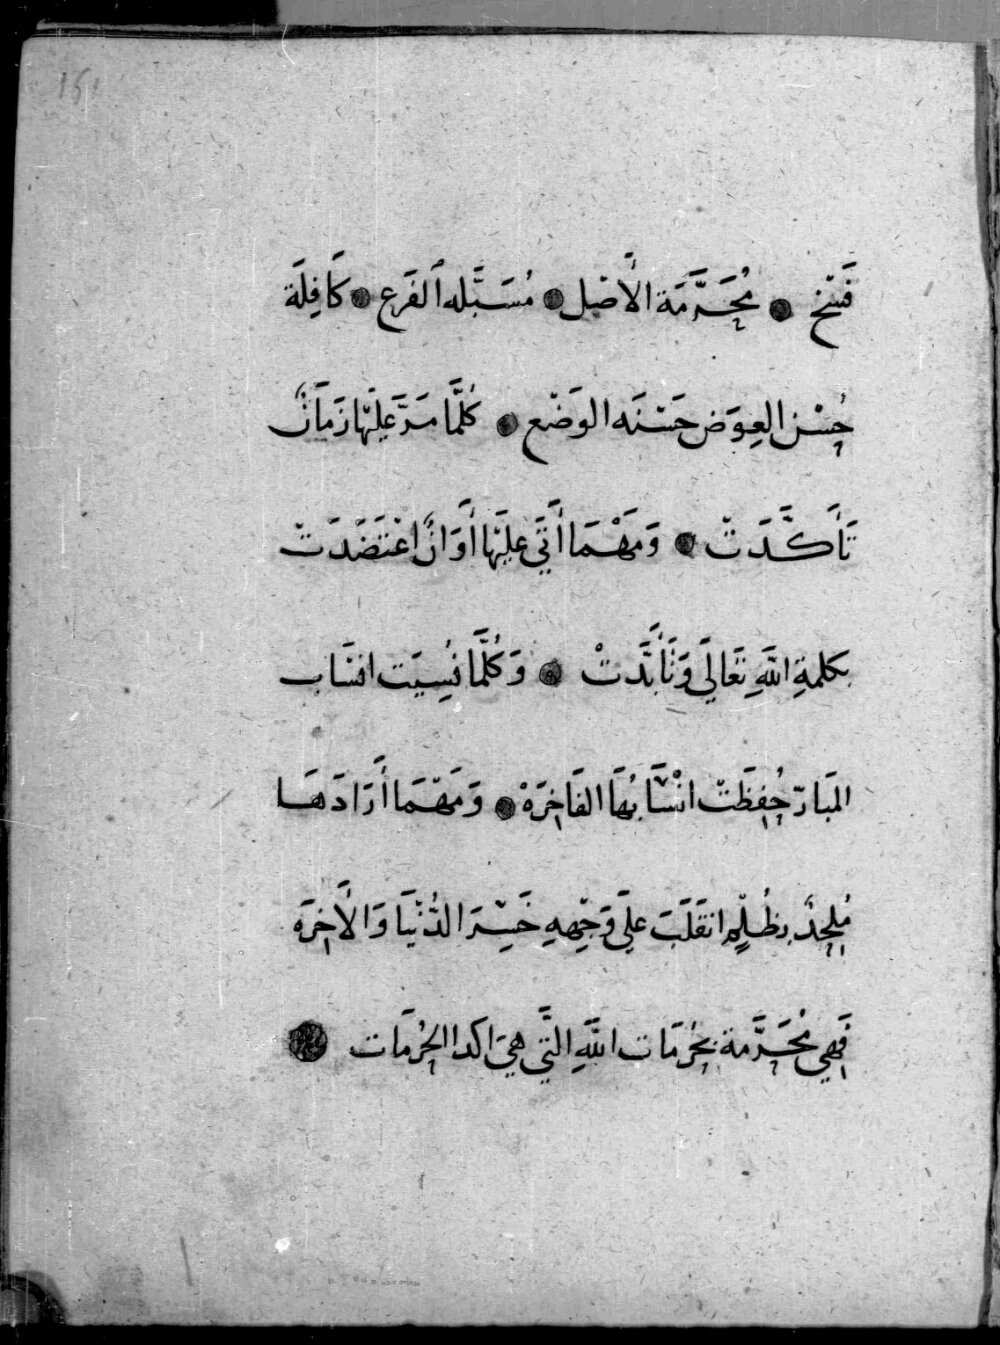 151
فَسْخٍ ● مُحَرَّمَة الأَصْل ● مُسَبَّله ٱلفَرع ● كَافِلَة
حُسْن العِوَض حَسْنَه الوَضْع ● كُلَّمَا مَرَّ عَلَيْهَا زَمَانٌ
تَأَكَّدَتْ ● وَمَهْمَا أَتَى عَلَيْهَا أَوَانٌ اعْتَضَدَتْ
بكلمةِ اللَّهِ تَعَالَى وَتَأَبَّدَتْ ● وَكُلَّمَا نُسِيَت انسَاب
المَبَارّ حُفِظَتْ انْسَابُهَا الفَاخِرَهْ ● وَمَهْمَا أَرَادَهَا
مُلحِدٌ بِظُلْمٍ انقَلَبَ عَلَى وَجْهِهِ خَسِرَ الدُّنْيَا وَالأَخِرَه
فَهِي مُحَرَّمة بحُرمَات اللَّهِ الَّتي هِيَ اكد الحُرمَات ●